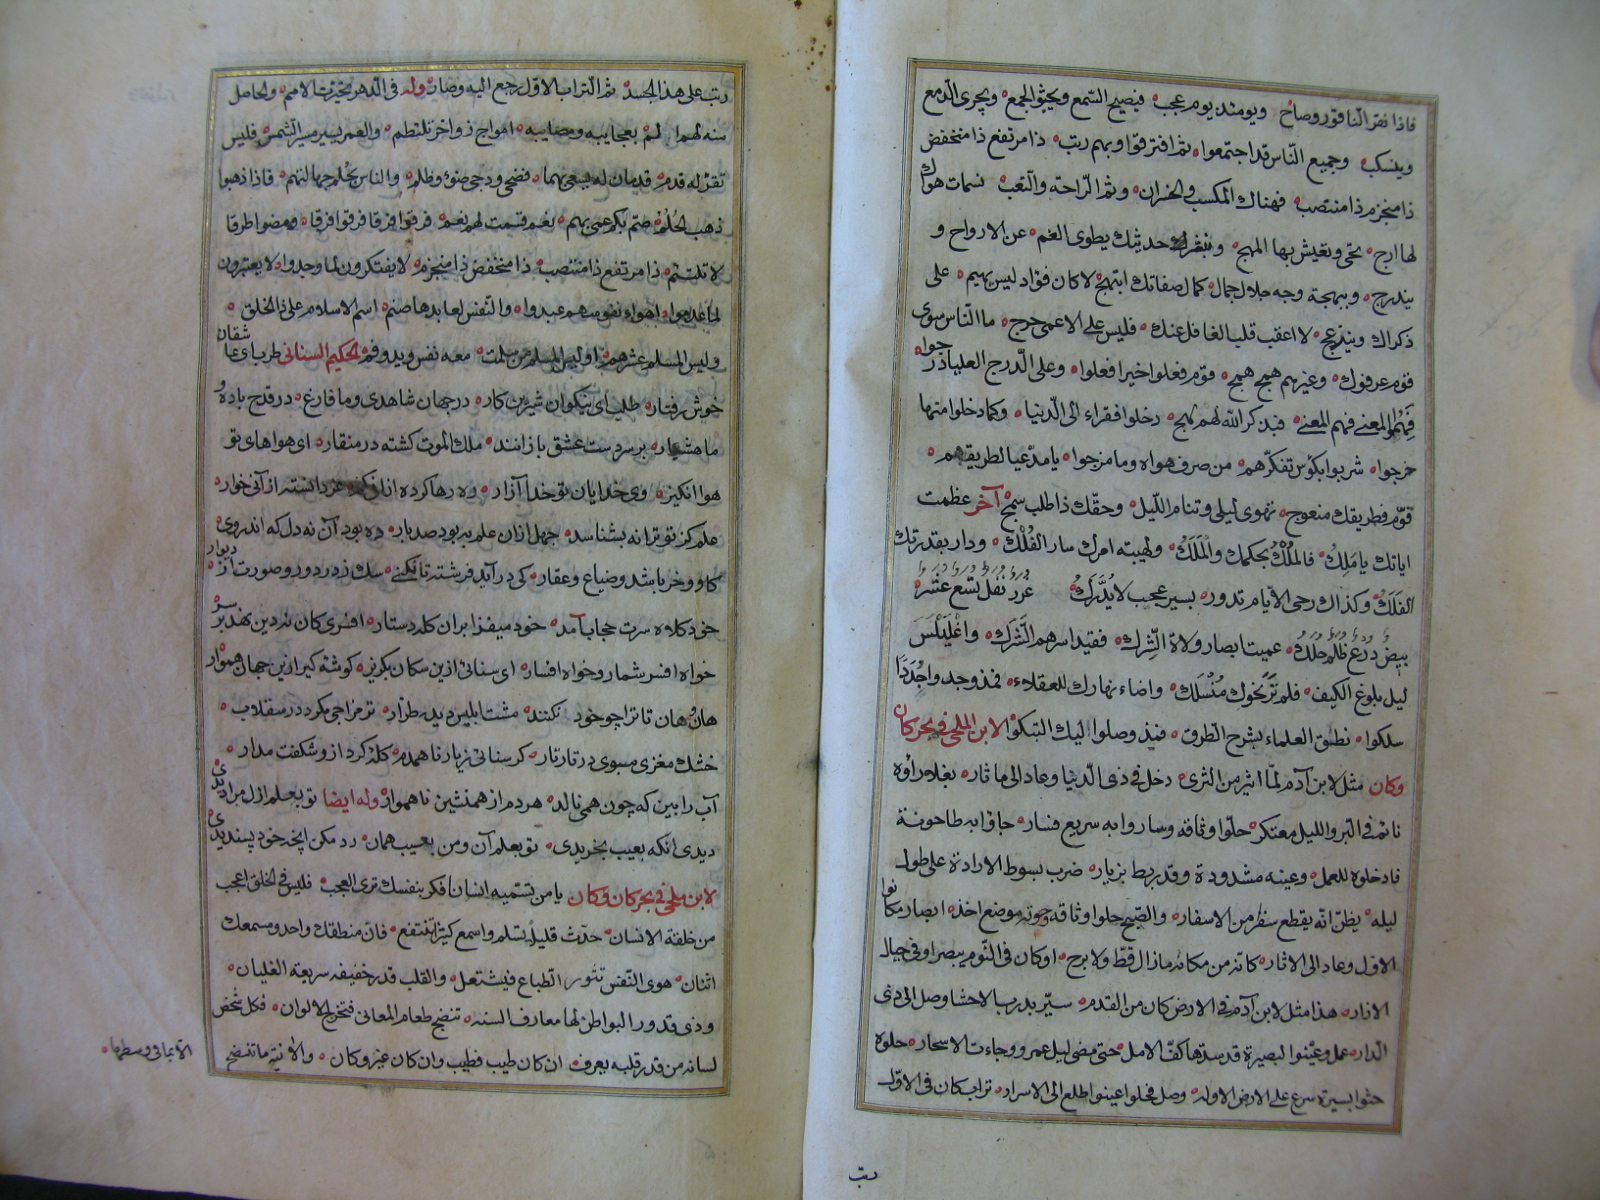 فاذا نقر الناقور وصاح ويومئذ يوم عجب فيصيح السمع ويحيثو الجمع ويجرى الدمع
وينسكب وجميع الناس قد اجتمعوا ثم افترقوا وبهم رتب ذا مرتفع ذا منخفض
ذا منجزم ذا منتصب فهناك المكسب والخسران وثم الراحة والتعب نسمات هواك
لها ارج تحيى وتعيش بها المهج وبنشر حديثك يطوى الغم عن الارواح و
يندرج وببهجة وجه جلال جمال كمال صفاتك ابتهج لا كان فؤاد ليس يهيم على
ذكراك وينزعج لا اعتب قلب الغافل عنك فليس على الاعمى حرج ما الناس سوى
قوم عرفوك وغيرهم همج همج قوم فعلوا خيرا فعلوا وعلى الدرج العليا درجوا
فهموا المعنى فهم المعنى فبذكر الله لهم لهج دخلوا فقراء الى الدنيا وكما دخلوا منها
خرجوا شربوا بكؤس تفكرهم من صرف هواه وما مزجوا يا مدعيا لطريقهم
قوم فطريقك منعوج تهوى ليلى وتنام الليل وحقك ذا طلب سمج آخر عظمت
اياتك يا ملك فالملك بحكمك والملك ولهيبة امرك سار الفلك ودار بقدرتك
الفلك وكذاك رحى الايام تدور بسير عجب لا يدرك غرر نفل تسع عشر
بيض درع ظلم حلك عميت ابصار ولاة الشرك فقيد اسرهم الشرك
ليل بلوغ الكيف فلم ترنحوك منسلك واضاء نهارك للعقلاء فمذ وجدوا جددا
سلكوا نطق العلماء بشرح الطرق فمذ وصلوا اليك ارتبكوا لابن الملحى فى بحر كان
وكان مثل لابن آدم لما اثير من الثرى دخل فى ذى الدنيا وعاد الى ما ثار بغلا راوه
نائم فى البر والليل معتكر حلوا وثاقه وساروا به سريع فسار جاؤا به طاحونة
فادخلوه للعمل وعينه مشدودة وقد ربط بزيار ضرب بسوط الارادة على طول
ليله يظن انه يقطع سفر من الاسفار والصبح حلوا وثاقه وجوته موضع اخذه ابصار مكانوا
الاول وعاد الى الاثار كانه من مكانه ما زال قط ولا برح او كان فى النوم يبصر او فى خيال
الازار هذا مثل لابن آدم فى الارض كان من القدم سير بدرب الاحشا وصل الى ذى
الدار عمل وعينوا البصيرة قد سدها كف الامل حتى مضى ليل عمرو وجاءت الاسحار حلوه
حثوا بسيره سرع على الارض الاوله وصل فحلوا عينوا اطلع الى الاسرار تراب كان فى الاول
رتب
رتب على هذا الجسد ثم التراب الاول رجع اليه وصار وله فى الدهر تحيرت الامم والحاصل
منه لهم الم بعجايبه ومصايبه امواج زواخر تلتطم والعمر يسير مسير الشمس فليس
تقر له قدم قدمان له يسعى بهما فضحى ودجى ضوء وظلم والناس بحلم جهالتهم فاذا ذهبوا
ذهب الحلم صم بكم عمى بهم نعم قسمت لهم نعم فرقوا فرقا فرقوا فرقا ومضوا طرقا
لا تلتئم ذا مرتفع ذا منتصب ذا منخفض ذا منجزم لا يفتكرون لما وجدوا لا يعتبرون
لما عدموا اهواء نفوسهم عبدوا والنفس لعابدها صنم اسم الاسلام على ذا الخلق
وليس المسلم عشرهم اوليس المسلم من سلمت معه نفس ويد وفم الحكيم السنائى طرب اى عاشقان
خوش رفتار طلب اى نيكوان شيرين كار در جهان شاهدى وما فارغ در قدح باده و
ما هشيار بر سر دست عشق بازانند ملك الموت كشته در منقار اى هواهاى تو
هوا انكيز وى خدايان تو خدا آزار ره رها كرده از آنى كم عز ندانسته از آنى خوار
علم كز تو ترا نه بستاند جهل ازان علم به بود صد بار ده بود آن نه دل كه اندروى
كاو وخر باشد وضياع وعقار كى در آيد فرشته تا نكنى سك ز در دور وصورت از ديوار
خود كلاه سرت حجاب آمد خود ميفزا بران كله دستار افسرى كان نه دين نهد بر سر
خواه افسر شمار وخواه افسار اى سنائى ازين سكان بكريز كوشه كير ازين جهان هموار
هان هان تا ترا چو خود نكنند مشت ابليس ديده طرار
خشك مغزى مپوى در تاتار كر سنائى ز يار ناهمدم كله كرد ازو شكفت مدار
آب را بين كه چون همى نالد هر دم از همنشين ناهموار وله ايضا تو بعلم ازل مرا ديدى
ديدى آنكه بعيب بخريدى تو بعلم آن ومن بعيب همان رد مكن آنچه خود پسنديدى
لابن ملحى فى بحر كان وكان يا من تسميه انسان افكر بنفسك ترى العجب فليس فى الخلق اعجب
من خلقة الانسان حدث قليل تسلم واسمع كثير تنتفع فان منطقك واحد ومسمعك
اثنان هوى النفس تثور الطباع فيشتعل والقلب قدر خفيفه سريعة الغليان
وذى قدور البواطن لها معارف السنه تنضج طعام المعانى فتخرج الالوان فكل شخص
لسانه من قدر قلبه يغرف ان كان طيب فطيب وان كان غيرو كان والانية ما تنضح
الا بما فى وسطها